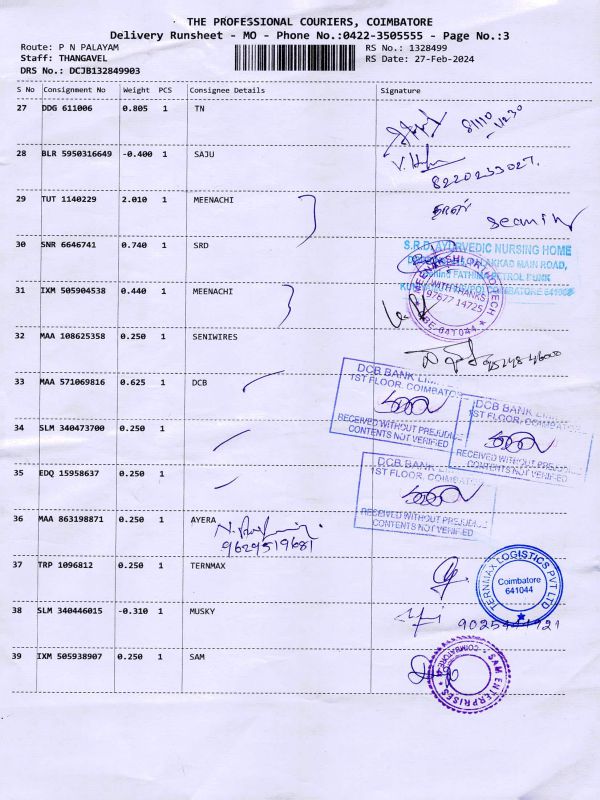 THE PROFESSIONAL COURIERS, COIMBATORE
Delivery Runsheet - MO - Phone No.:0422-3505555 - Page No.:3
Route: P N PALAYAM RS No.: 1328499
Staff: THANGAVEL RS Date: 27-Feb-2024
DRS No.: DCJB132849903
S No Consignment No Weight PCS Consignee Details Signature
27 DDG 611006 0.805 1 TN
28 BLR 5950316649 -0.400 1 SAJU
8220233027.
29 TUT 1140229 2.010 1 MEENACHI
30 SNR 6646741 0.740 1 SRD
S.R.D. AYURVEDIC NURSING HOME
WITH THANKS
97877 14725
31 IXM 505904538 0.440 1 MEENACHI
32 MAA 108625358 0.250 1 SENIWIRES
33 MAA 571069816 0.625 1 DCB
DCB BANK
1ST FLOOR, COIMBATORE
RECEIVED WITHOUT PREJUDICE
CONTENTS NOT VERIFIED
34 SLM 340473700 0.250 1
DCB BANK
1ST FLOOR, COIMBATORE
RECEIVED WITHOUT PREJUDICE
CONTENTS NOT VERIFIED
35 EDQ 15958637 0.250 1
DCB BANK
1ST FLOOR, COIMBATORE
RECEIVED WITHOUT PREJUDICE
CONTENTS NOT VERIFIED
36 MAA 863198871 0.250 1 AYERA
9629519681
37 TRP 1096812 0.250 1 TERNMAX
TERNMAX LOGISTICS PVT LTD
Coimbatore
641044
38 SLM 340446015 -0.310 1 MUSKY
39 IXM 505938907 0.250 1 SAM
SAM ENTERPRISES
COIMBATORE